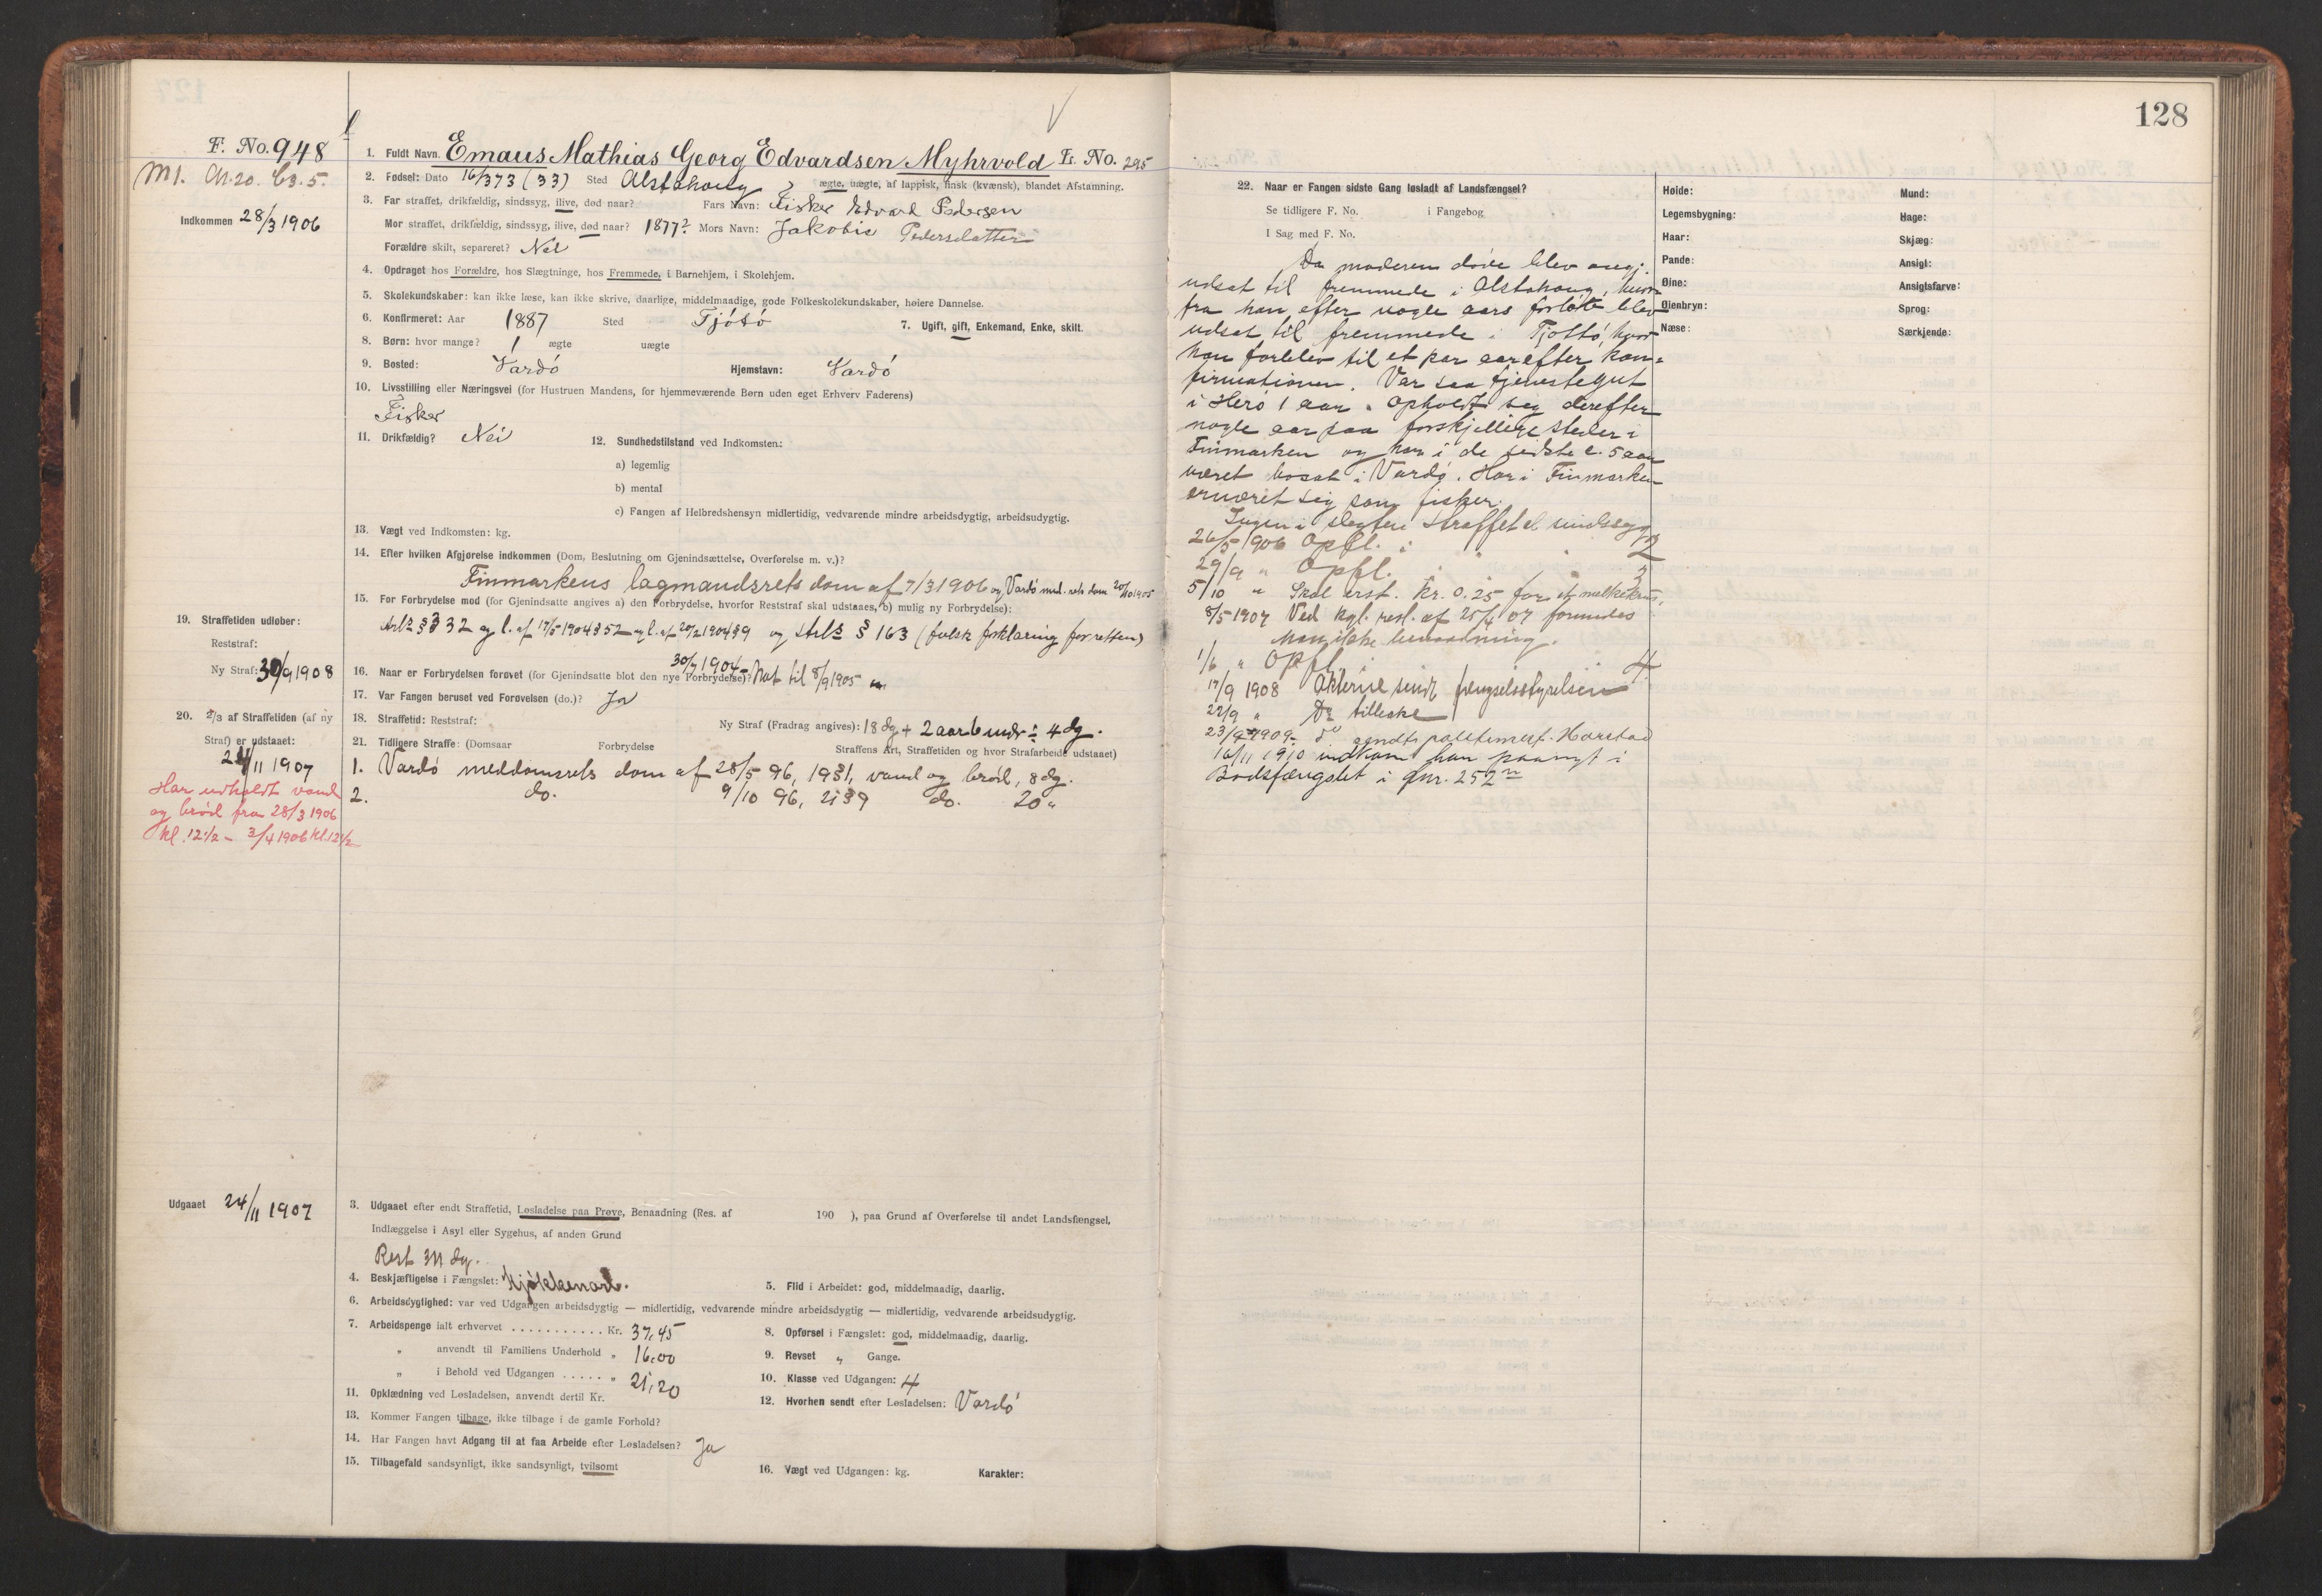 128
F. No. 948
M1. Ch. 20. C3. 5.
Indkommen 28/3 1906
1. Fuldt Navn. Emaus Mathias Georg Edvardsen Myhrvold Fr. No. 295
2. Fødsel: Dato 16/3 73 (33) Sted Alstahoug ægte, uægte, af lappisk, finsk (kvænsk), blandet Afstamning.
3. Far straffet, drikfældig, sindssyg, ilive, død naar? Fars Navn: Fisker Edvard Pedersen
Mor straffet, drikfældig, sindssyg, ilive, død naar? 1877? Mors Navn: Jakobie Pedersdatter
Forældre skilt, separeret? Nei
4. Opdraget hos Forældre, hos Slægtninge, hos Fremmede, i Barnehjem, i Skolehjem.
5. Skolekundskaber: kan ikke læse, kan ikke skrive, daarlige, middelmaadige, gode Folkeskolekundskaber, høiere Dannelse.
6. Konfirmeret: Aar 1887 Sted Tjötö 7. Ugift, gift, Enkemand, Enke, skilt.
8. Børn: hvor mange? 1 ægte uægte
9. Bosted: Vardö Hjemstavn: Vardö
10. Livsstilling eller Næringsvei (for Hustruen Mandens, for hjemmeværende Børn uden eget Erhverv Faderens)
Fisker
11. Drikfældig? Nei 12. Sundhedstilstand ved Indkomsten:
a) legemlig
b) mental
c) Fangen af Helbredshensyn midlertidig, vedvarende mindre arbeidsdygtig, arbeidsudygtig.
13. Vægt ved Indkomsten: kg.
14. Efter hvilken Afgjørelse indkommen (Dom, Beslutning om Gjenindsættelse, Overførelse m. v.)?
Finmarkens lagmandsrets dom af 7/3 1906 og Vardö med. rets dom 20/10 1905
15. For Forbrydelse mod (for Gjenindsatte angives a) den Forbrydelse, hvorfor Reststraf skal udstaaes, b) mulig ny Forbrydelse):
§ 332 og l. af 17/5 1904 § 52 og l. af 20/2 1904 § 9 og strl § 163 (falsk forklaring for retten)
19. Straffetiden udløber:
Reststraf:
Ny Straf: 30/9 1908
16. Naar er Forbrydelsen forøvet (for Gjenindsatte blot den nye Forbrydelse)? 30/7 1904 Nat til 8/9 1905
17. Var Fangen beruset ved Forøvelsen (do.)? Ja
20. 2/3 af Straffetiden (af ny
Straf) er udstaaet:
24/11 1907
18. Straffetid: Reststraf: Ny Straf (Fradrag angives): 18 dg + 2 aar 6 mdr ÷ 4 dg.
21. Tidligere Straffe: (Domsaar Forbrydelse Straffens Art, Straffetiden og hvor Strafarbeide udstaaet)
1. Vardö meddomsrets dom af 28/5 96, 19§1, vand og bröd, 8 dg.
2. do. 9/10 96, 21§9 do. 20 "
Har udholdt vand
og bröd fra 28/3 1906
kl. 12 1/2 – 3/4 1906 kl. 12 1/2
Udgaaet 24/11 1907
3. Udgaaet efter endt Straffetid, Løsladelse paa Prøve, Benaadning (Res. af 190 ), paa Grund af Overførelse til andet Landsfængsel,
Indlæggelse i Asyl eller Sygehus, af anden Grund
Rest 311 dg.
4. Beskjæftigelse i Fængslet: Kjøkkenarb. 5. Flid i Arbeidet: god, middelmaadig, daarlig.
6. Arbeidsdygtighed: var ved Udgangen arbeidsdygtig — midlertidig, vedvarende mindre arbeidsdygtig — midlertidig, vedvarende arbeidsudygtig.
7. Arbeidspenge ialt erhvervet ........... Kr. 37,45 8. Opførsel i Fængslet: god, middelmaadig, daarlig.
" anvendt til Familiens Underhold " 16,00 9. Revset " Gange.
" i Behold ved Udgangen ..... " 21,20 10. Klasse ved Udgangen: 4
11. Opklædning ved Løsladelsen, anvendt dertil Kr. 12. Hvorhen sendt efter Løsladelsen: Vardö
13. Kommer Fangen tilbage, ikke tilbage i de gamle Forhold?
14. Har Fangen havt Adgang til at faa Arbeide efter Løsladelsen? Ja
15. Tilbagefald sandsynligt, ikke sandsynligt, tvilsomt 16. Vægt ved Udgangen: kg. Karakter:
22. Naar er Fangen sidste Gang løsladt af Landsfængsel?
Se tidligere F. No. i Fangebog
I Sag med F. No.
Da moderen døde blev angj.
udsat til fremmede i Alstahoug, hvor-
fra han efter nogle aars forløb blev
udsat til fremmede i Tjøttö, hvor
han forblev til et par aar efter kon-
firmationen. Var saa tjenestegut
i Herö 1 aar. Opholdt seg derefter
nogle aar paa forskjellige steder i
Finmarken og har i de sidste c. 5 aar
været bosat i Vardö. Har i Finmarken
ernæret sig som fisker.
Ingen i slegten straffet el. sindssyg
26/5 1906 Opfl. i 2
29/9 " Opfl. 3
5/10 " Skal erst. kr. 0.25 for et melkekrus.
8/5 1907 Ved kgl. resl. af 25/4 07 formedes
Man ikke benaadning.
1/6 " Opfl. i 4
17/9 1908 Akterne sendt fængselsstyrelsen
22/9 " Do tilbake
23/9 1909 do sendt politimest. Harstad
16/11 1910 indkom han paanyt i
Bodsfængslet i fnr. 252
Høide:
Legemsbygning:
Haar:
Pande:
Øine:
Øienbryn:
Næse:
Mund:
Hage:
Skjæg:
Ansigt:
Ansigtsfarve:
Sprog:
Særkjende: